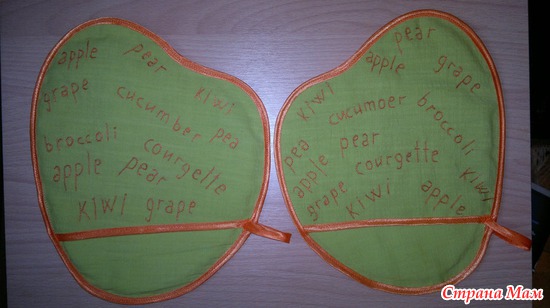 apple pear
grape kiwi
cucumber pea
broccoli courgette
apple pear
kiwi grape
pear
apple grape
kiwi cucumber broccoli
pea pear
apple courgette kiwi
grape kiwi apple
Страна Мам